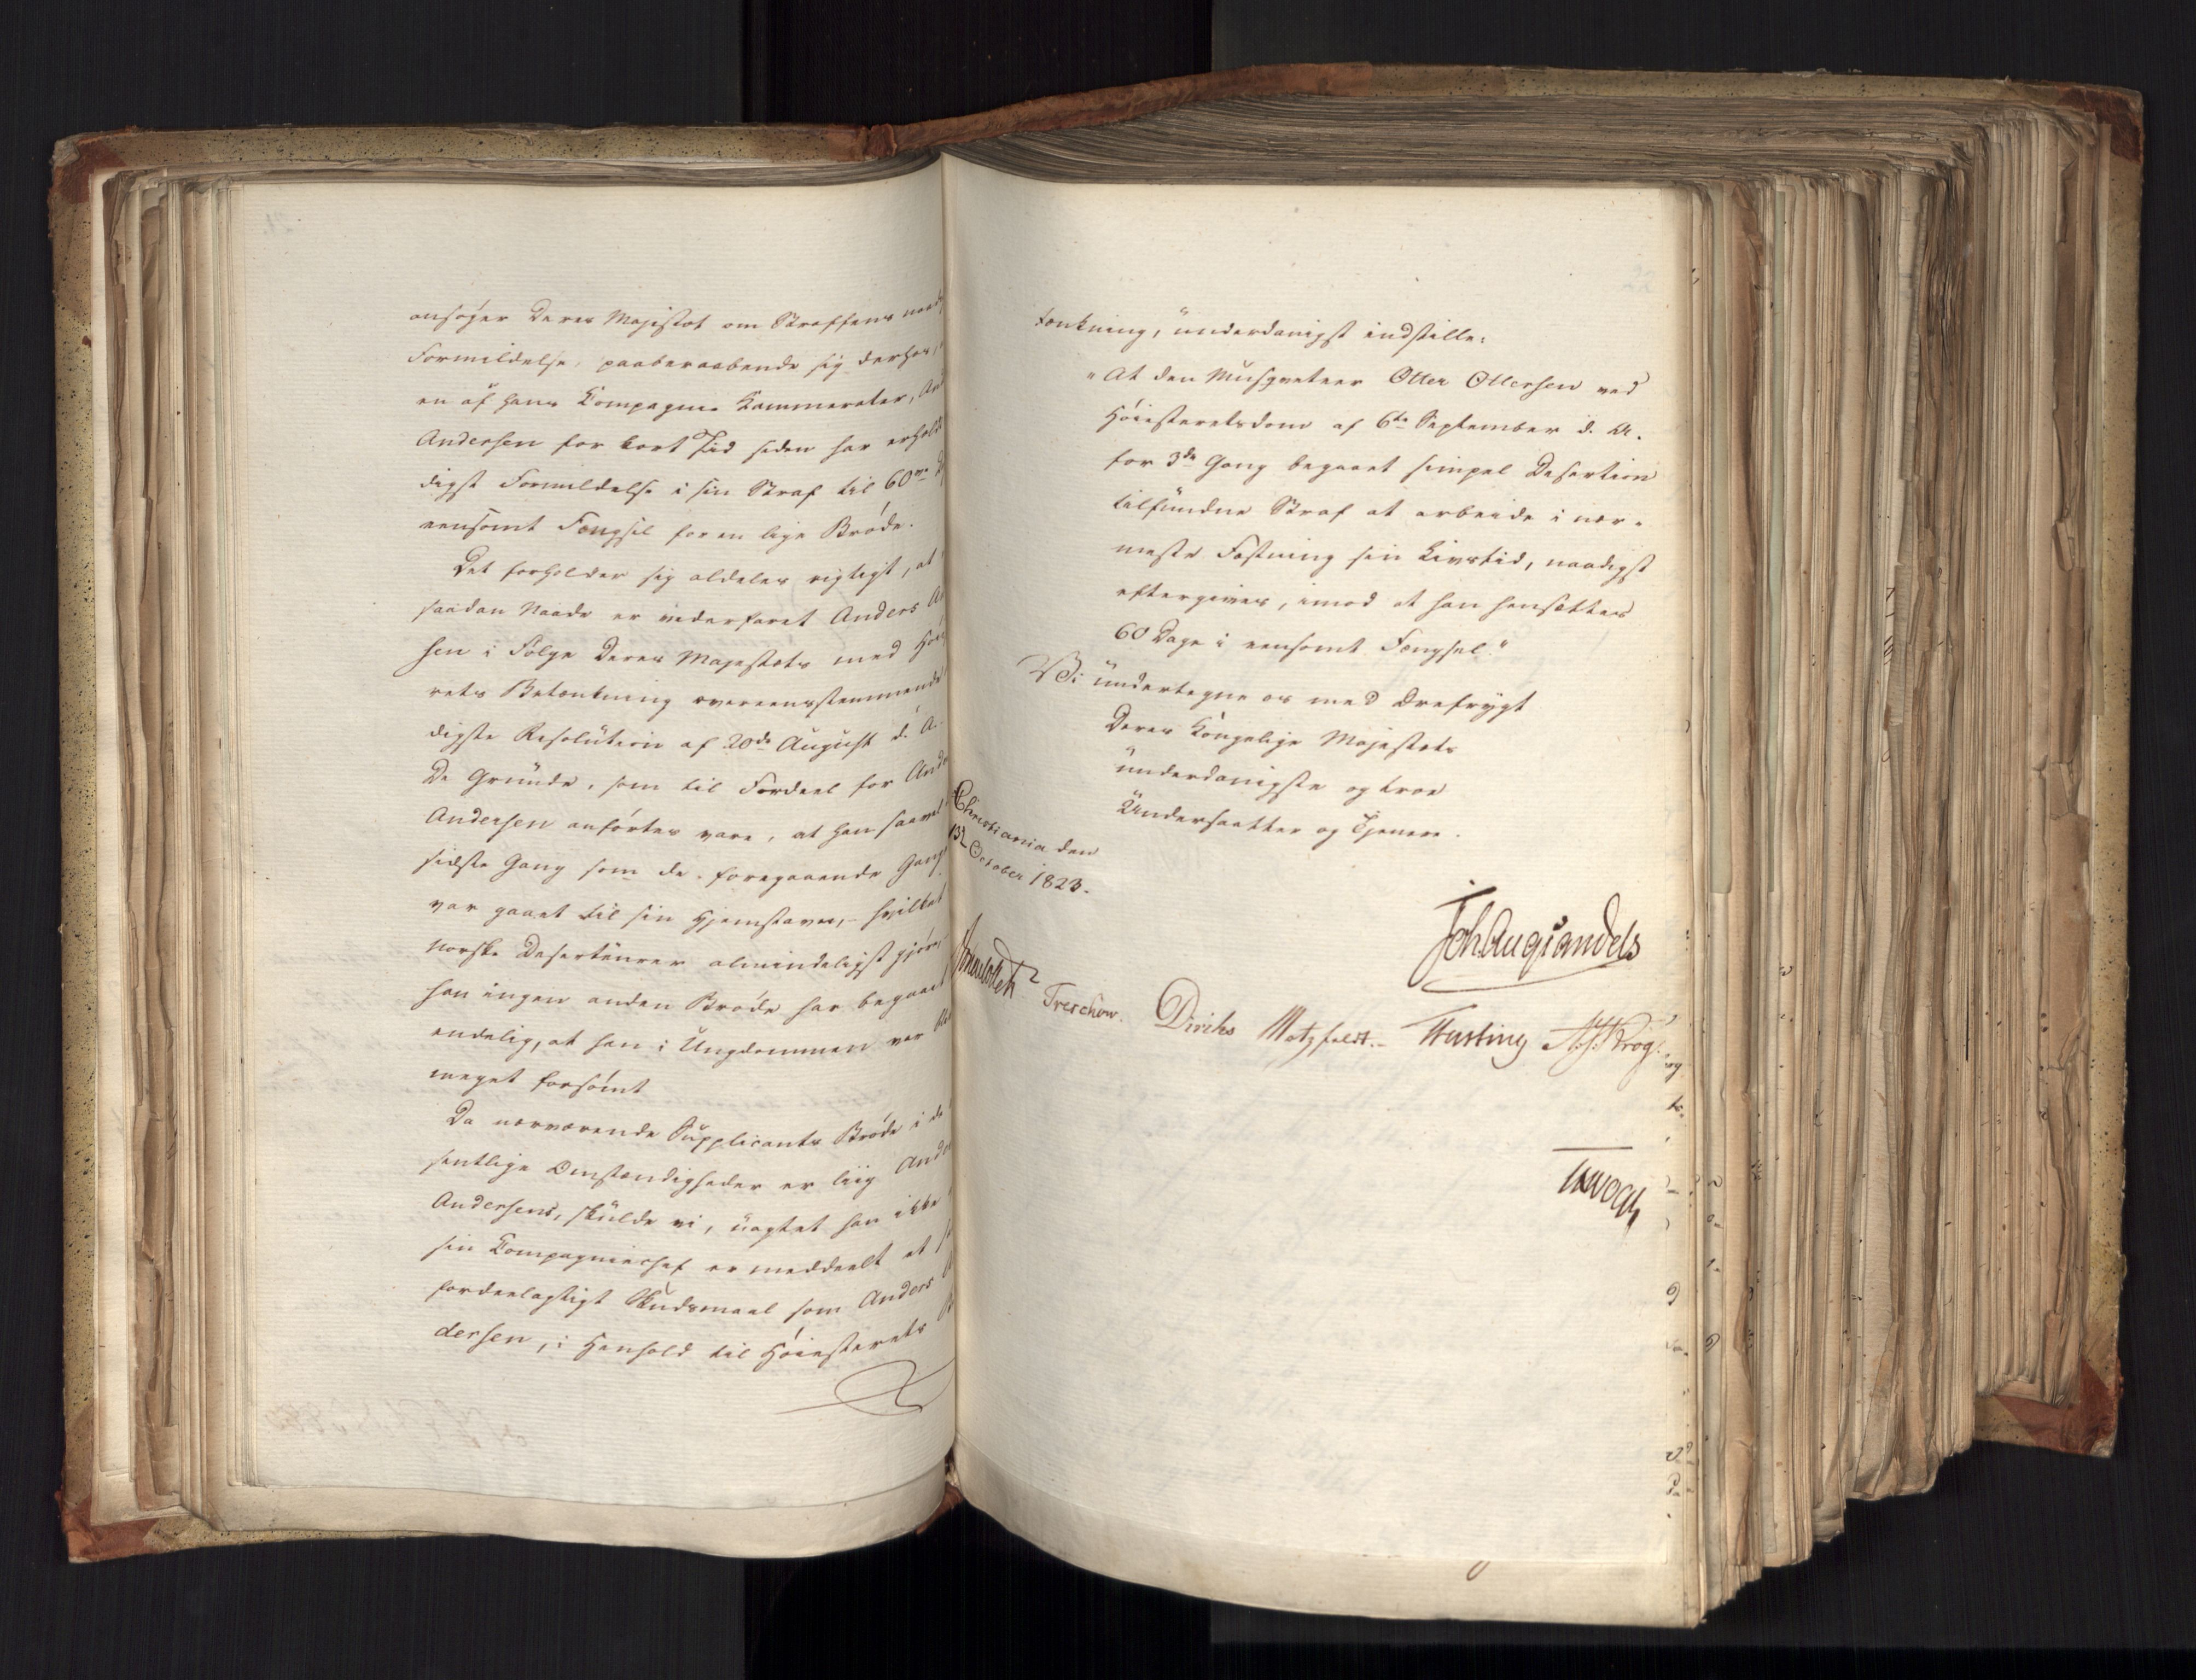 ansøger Deres Majestæt om Straffens naad
Formildelse, paaberaabende sig derhos,
en af hans Compagnie Kammerater, And
Andersen for kort Tid siden har erholdt
digst Formildelse i sin Straf til 60ve D
eensomt Fængsel for en lige Brøde.
Det forholder sig aldeles rigtigt, at
saadan Naade er vederfaret Anders An
sen i Følge Deres Majestæts med Høie
rets Betænkning overeensstemmende
digste Resolution af 20de August d. A.
De Grunde, som til Fordeel for Ande
Andersen anførtes vare, at han saavel
sidste Gang som de foregaaende Gang
var gaaet til sin Hjemstavn, hvilket
norske Deserteurer almindeligst gjøre,
han ingen anden Brøde har begaaet
endelig, at han i Ungdommen var
meget forsømt
Da nærværende Supplicants Brøde i de
sentlige Omstændigheder er liig Ande
Andersens, skulde vi, uagtet han ikke
sin Compagniechef er meddeelt et
fordeelagtigt Skudsmaal som Anders
dersen, i Henhold til Høiesterets B
tænkning, underdanigst indstille:
"At den Musqueteer Otter Ottersen ved
Høiesteretsdom af 6te September d. A.
for 3de Gang begaaet simpel Desertion
tilfundne Straf at arbeide i nær-
meste Fæstning sin Livstid, naadigst
eftergives, imod at han hensættes
60 Dage i eensomt Fængsel."
Vi undertegne os med Ærefrygt
Deres Kongelige Majestæts
underdanigste og troe
Undersaatter og Tjenere.
Christiania den
13 October 1823.
Joh Aug Sandels
Treschow. Diriks Motzfeldt. Fasting Krog